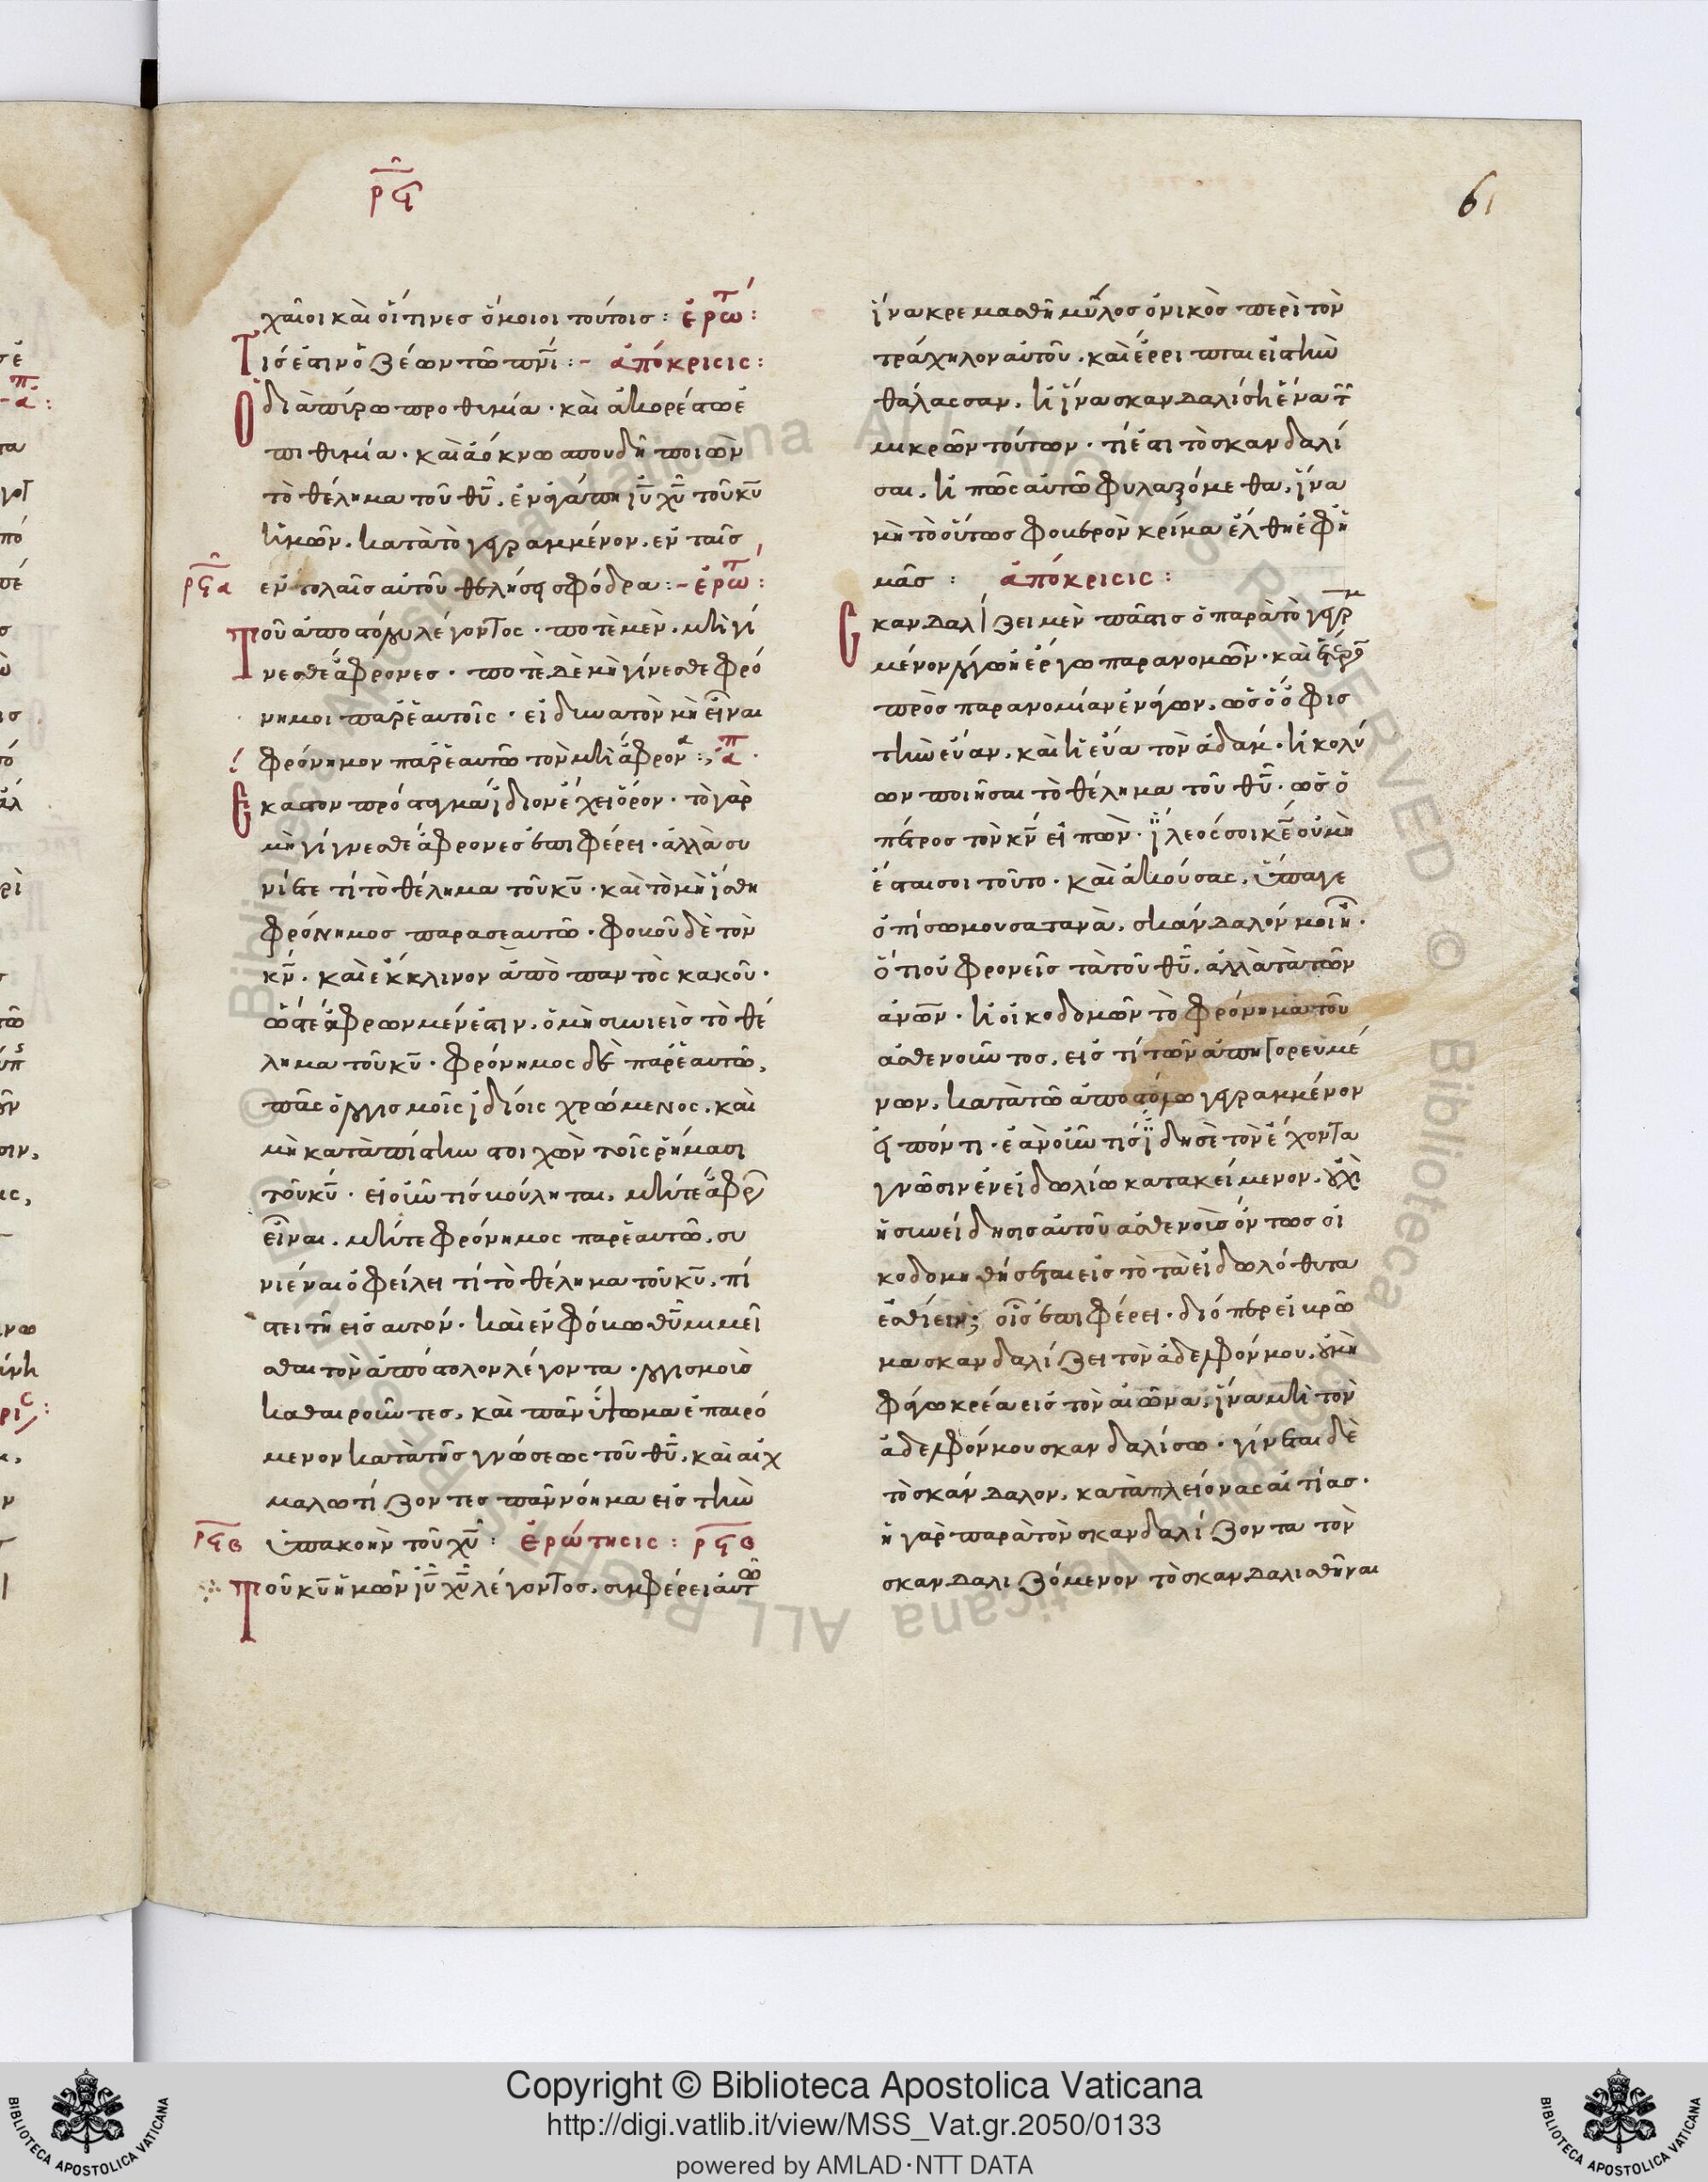 ρϟ
61
χαῖοι καὶ οἵτινες ὅμοιοι τούτοις : ἐρωτ :
Τίς ἐστιν ὁ ζέων τῶ πνι :- ἀπόκρισις :
Ὁ διαπύρω προθυμία · καὶ ἀκορέστω ἐ
πιθυμία · καὶ ἀόκνω σπουδῆ ποιῶν
τὸ θέλημα τοῦ θυ, ἐν ἀγάπη ιυ χυ τοῦ κυ
ἡμῶν, κατὰ τὸ γεγραμμένον, ἐν ταῖς
ρϟα
ἐντολαῖς αὐτοῦ θελήσει σφόδρα :- ἐρωτ :
Τοῦ ἀποστόλου λέγοντος · ποτὲ μὲν, μὴ γί
νεσθε ἄφρονες · ποτὲ δὲ μὴ γίνεσθε φρό
νημοι παρ' ἑαυτοῖς · εἰ δυνατὸν μὴ εἶναι
φρόνημον παρ' ἑαυτῶ τὸν μὴ ἄφρονα : ἀπ ·
Ἕκαστον πρόσταγμα ἴδιον ἔχει ὅρον · τὸ γὰρ
μὴ γίγνεσθε ἄφρονες ἐπιφέρει · ἀλλὰ συ
νίετε τί τὸ θέλημα τοῦ κυ · καὶ τὸ μὴ ἴσθη
φρόνημος παρὰ σεαυτῶ · φοβοῦ δὲ τὸν
κν, καὶ ἔκκλινον ἀπὸ παντὸς κακοῦ ·
ὥστε ἄφρων μέν ἐστιν, ὁ μὴ συνιεὶς τὸ θέ
λημα τοῦ κυ · φρόνημος δὲ παρ' ἑαυτῶ,
πᾶς ὁ λογισμοῖς ἰδίοις χρώμενος, καὶ
μὴ κατὰ πίστιν στοιχῶν τοῖς ῥήμασι
τοῦ κυ · εἰ οὖν τίς βούληται, μήτε ἄφρων
εἶναι, μήτε φρόνημος παρ' ἑαυτῶ, συ
νιέναι ὀφείλει τί τὸ θέλημα τοῦ κυ, πί
στει τῆ εἰς αυτον · καὶ ἐν φόβω θυ μιμεῖ
σθαι τὸν ἀπόστολον λέγοντα · λογισμοὺς
καθαιροῦντες, καὶ πᾶν ὕψωμα ἐπαιρό
μενον κατὰ τῆς γνώσεως τοῦ θυ, καὶ αἰχ
μαλωτίζοντες πᾶν νόημα εἰς τὴν
ρϟβ
ὑπακοὴν τοῦ χυ : ἐρώτησις : ρϟβ
Τοῦ κυ ἡμῶν ιυ χυ λέγοντος, συμφέρει αὐτῶ
ἵνα κρεμασθῆ μύλος ὀνικὸς περὶ τὸν
τράχηλον αὐτοῦ, καὶ ἔρριπται εἰς τὴν
θάλασσαν, ἢ ἵνα σκανδαλίση ἕνα τ
μικρῶν τούτων · τί ἐστι τὸ σκανδαλί
σαι, ἢ πῶς αὐτῶ φυλαξόμεθα, ἵνα
μὴ τὸ οὕτως φοβερὸν κρίμα ἔλθη ἐφ' ἡ
μᾶς : ἀπόκρισις :
Σκανδαλίζει μὲν πᾶς τις ὁ παρὰ τὸ γεγραμ
μένον λόγω ἢ ἔργω παρανομῶν · καὶ ἕτερον
πρὸς παρανομίαν ἐνάγων, ὡς ὁ ὄφις
τὴν εὔαν, καὶ ἡ εὔα τὸν ἀδάμ · ἢ κολύ
ων ποιῆσαι τὸ θέλημα τοῦ θυ · ὡς ὁ
πέτρος τὸν κν εἰπὼν · ἵλεός σοι κε οὐ μὴ
ἔσται σοι τοῦτο · καὶ ἀκούσας, ὕπαγε
ὀπίσω μου σατανᾶ, σκάνδαλόν μοι ἦ ·
ὅτι οὐ φρονεῖς τὰ τοῦ θυ, ἀλλὰ τὰ τῶν
ανων · ἢ οἰκοδομῶν τὸ φρόνημα τοῦ
ἀσθενοῦντος, εἴς τί τῶν ἀπηγορευμέ
νων, κατὰ τῶ ἀποστόλω γεγραμμένον
εἰπόντι · ἐὰν οὖν τίς ἴδη σὲ τὸν ἔχοντα
γνῶσιν ἐν εἰδωλίω κατακείμενον, οὐχὶ
ἡ συνείδησις αὐτοῦ ἀσθενοῦς ὄντως οἰ
κοδομηθήσεται εἰς τὸ τὰ εἰδωλόθυτα
ἐσθίειν; οἷς ἐπιφέρει · διόπερ εἰ βρῶ
μα σκανδαλίζει τὸν ἀδελφόν μου, οὐ μὴ
φάγω κρέα εἰς τὸν αἰῶνα, ἵνα μὴ τὸν
ἀδελφόν μου σκανδαλίσω · γίνεται δὲ
τὸ σκάνδαλον, κατὰ πλείονας αἰτίας ·
ἢ γὰρ παρὰ τὸν σκανδαλίζοντα τὸν
σκανδαλιζόμενον τὸ σκανδαλισθῆναι
Copyright © Biblioteca Apostolica Vaticana
http://digi.vatlib.it/view/MSS_Vat.gr.2050/0133
powered by AMLAD·NTT DATA